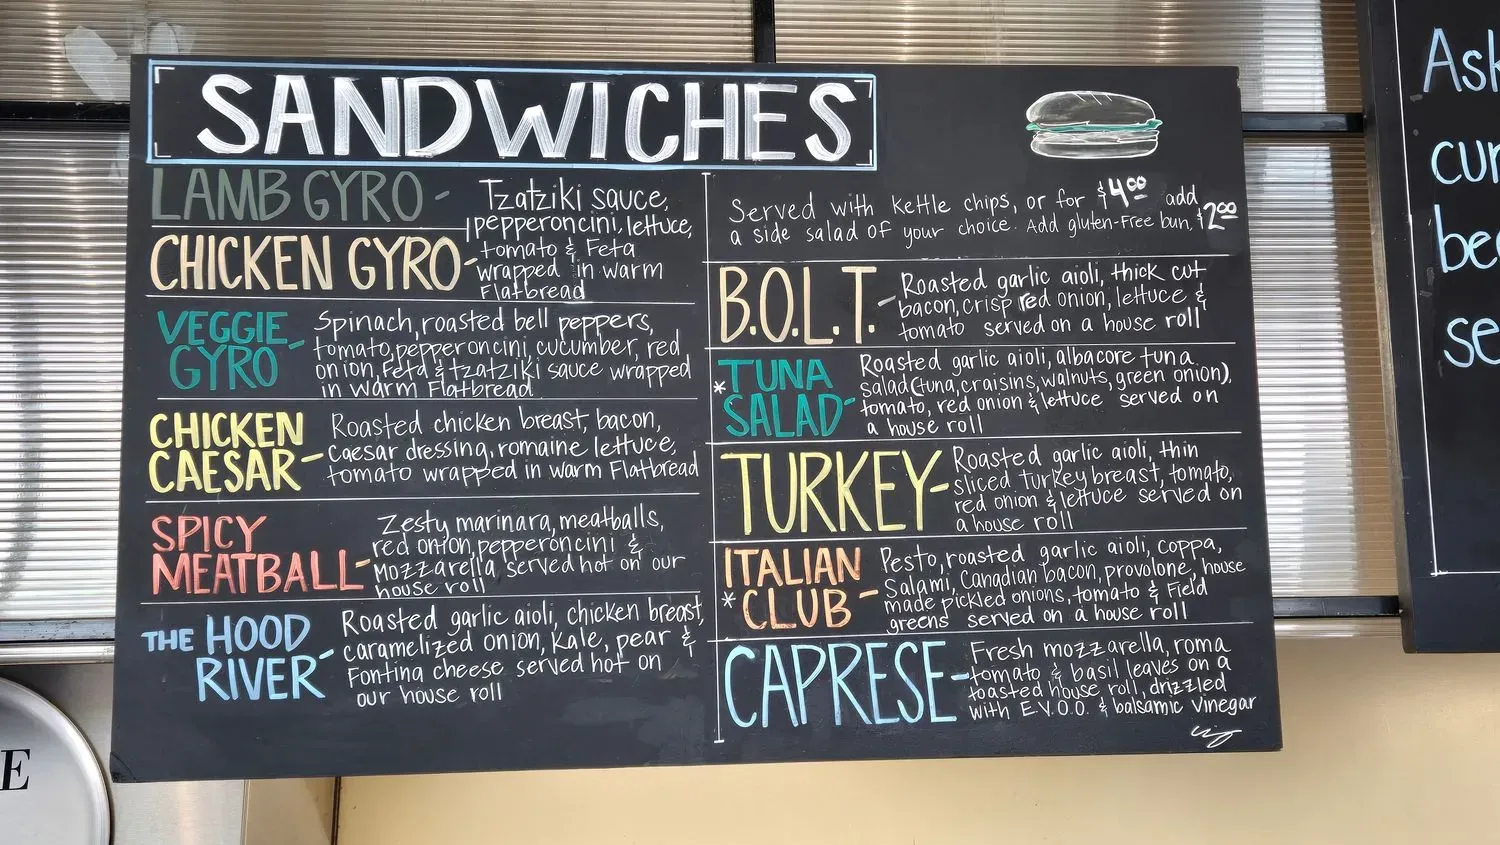 SANDWICHES
LAMB GYRO -
CHICKEN GYRO -
Tzatziki sauce,
pepperoncini, lettuce,
tomato & Feta
wrapped in warm
Flatbread
VEGGIE
GYRO -
Spinach, roasted bell peppers,
tomato, pepperoncini, cucumber, red
onion, Feta & tzatziki sauce wrapped
in warm Flatbread
CHICKEN
CAESAR -
Roasted chicken breast, bacon,
Caesar dressing, romaine lettuce,
tomato wrapped in warm Flatbread
SPICY
MEATBALL -
Zesty marinara, meatballs,
red onion, pepperoncini &
Mozzarella served hot on our
house roll
THE HOOD
RIVER -
Roasted garlic aioli, chicken breast,
caramelized onion, Kale, pear &
Fontina cheese served hot on
our house roll
Served with kettle chips, or for $4.00 add
a side salad of your choice. Add gluten-Free bun, $2.00
B.O.L.T. -
Roasted garlic aioli, thick cut
bacon, crisp red onion, lettuce &
tomato served on a house roll
* TUNA
SALAD -
Roasted garlic aioli, albacore tuna
salad (tuna, craisins, walnuts, green onion),
tomato, red onion & lettuce served on
a house roll
TURKEY -
Roasted garlic aioli, thin
sliced turkey breast, tomato,
red onion & lettuce served on
a house roll
ITALIAN
* CLUB -
Pesto, roasted garlic aioli, Coppa,
Salami, Canadian bacon, provolone, house
made pickled onions, tomato & Field
greens served on a house roll
CAPRESE -
Fresh mozzarella, roma
tomato & basil leaves on a
toasted house roll, drizzled
with E.V.O.O. & balsamic vinegar
Ask
cur
be
se
E